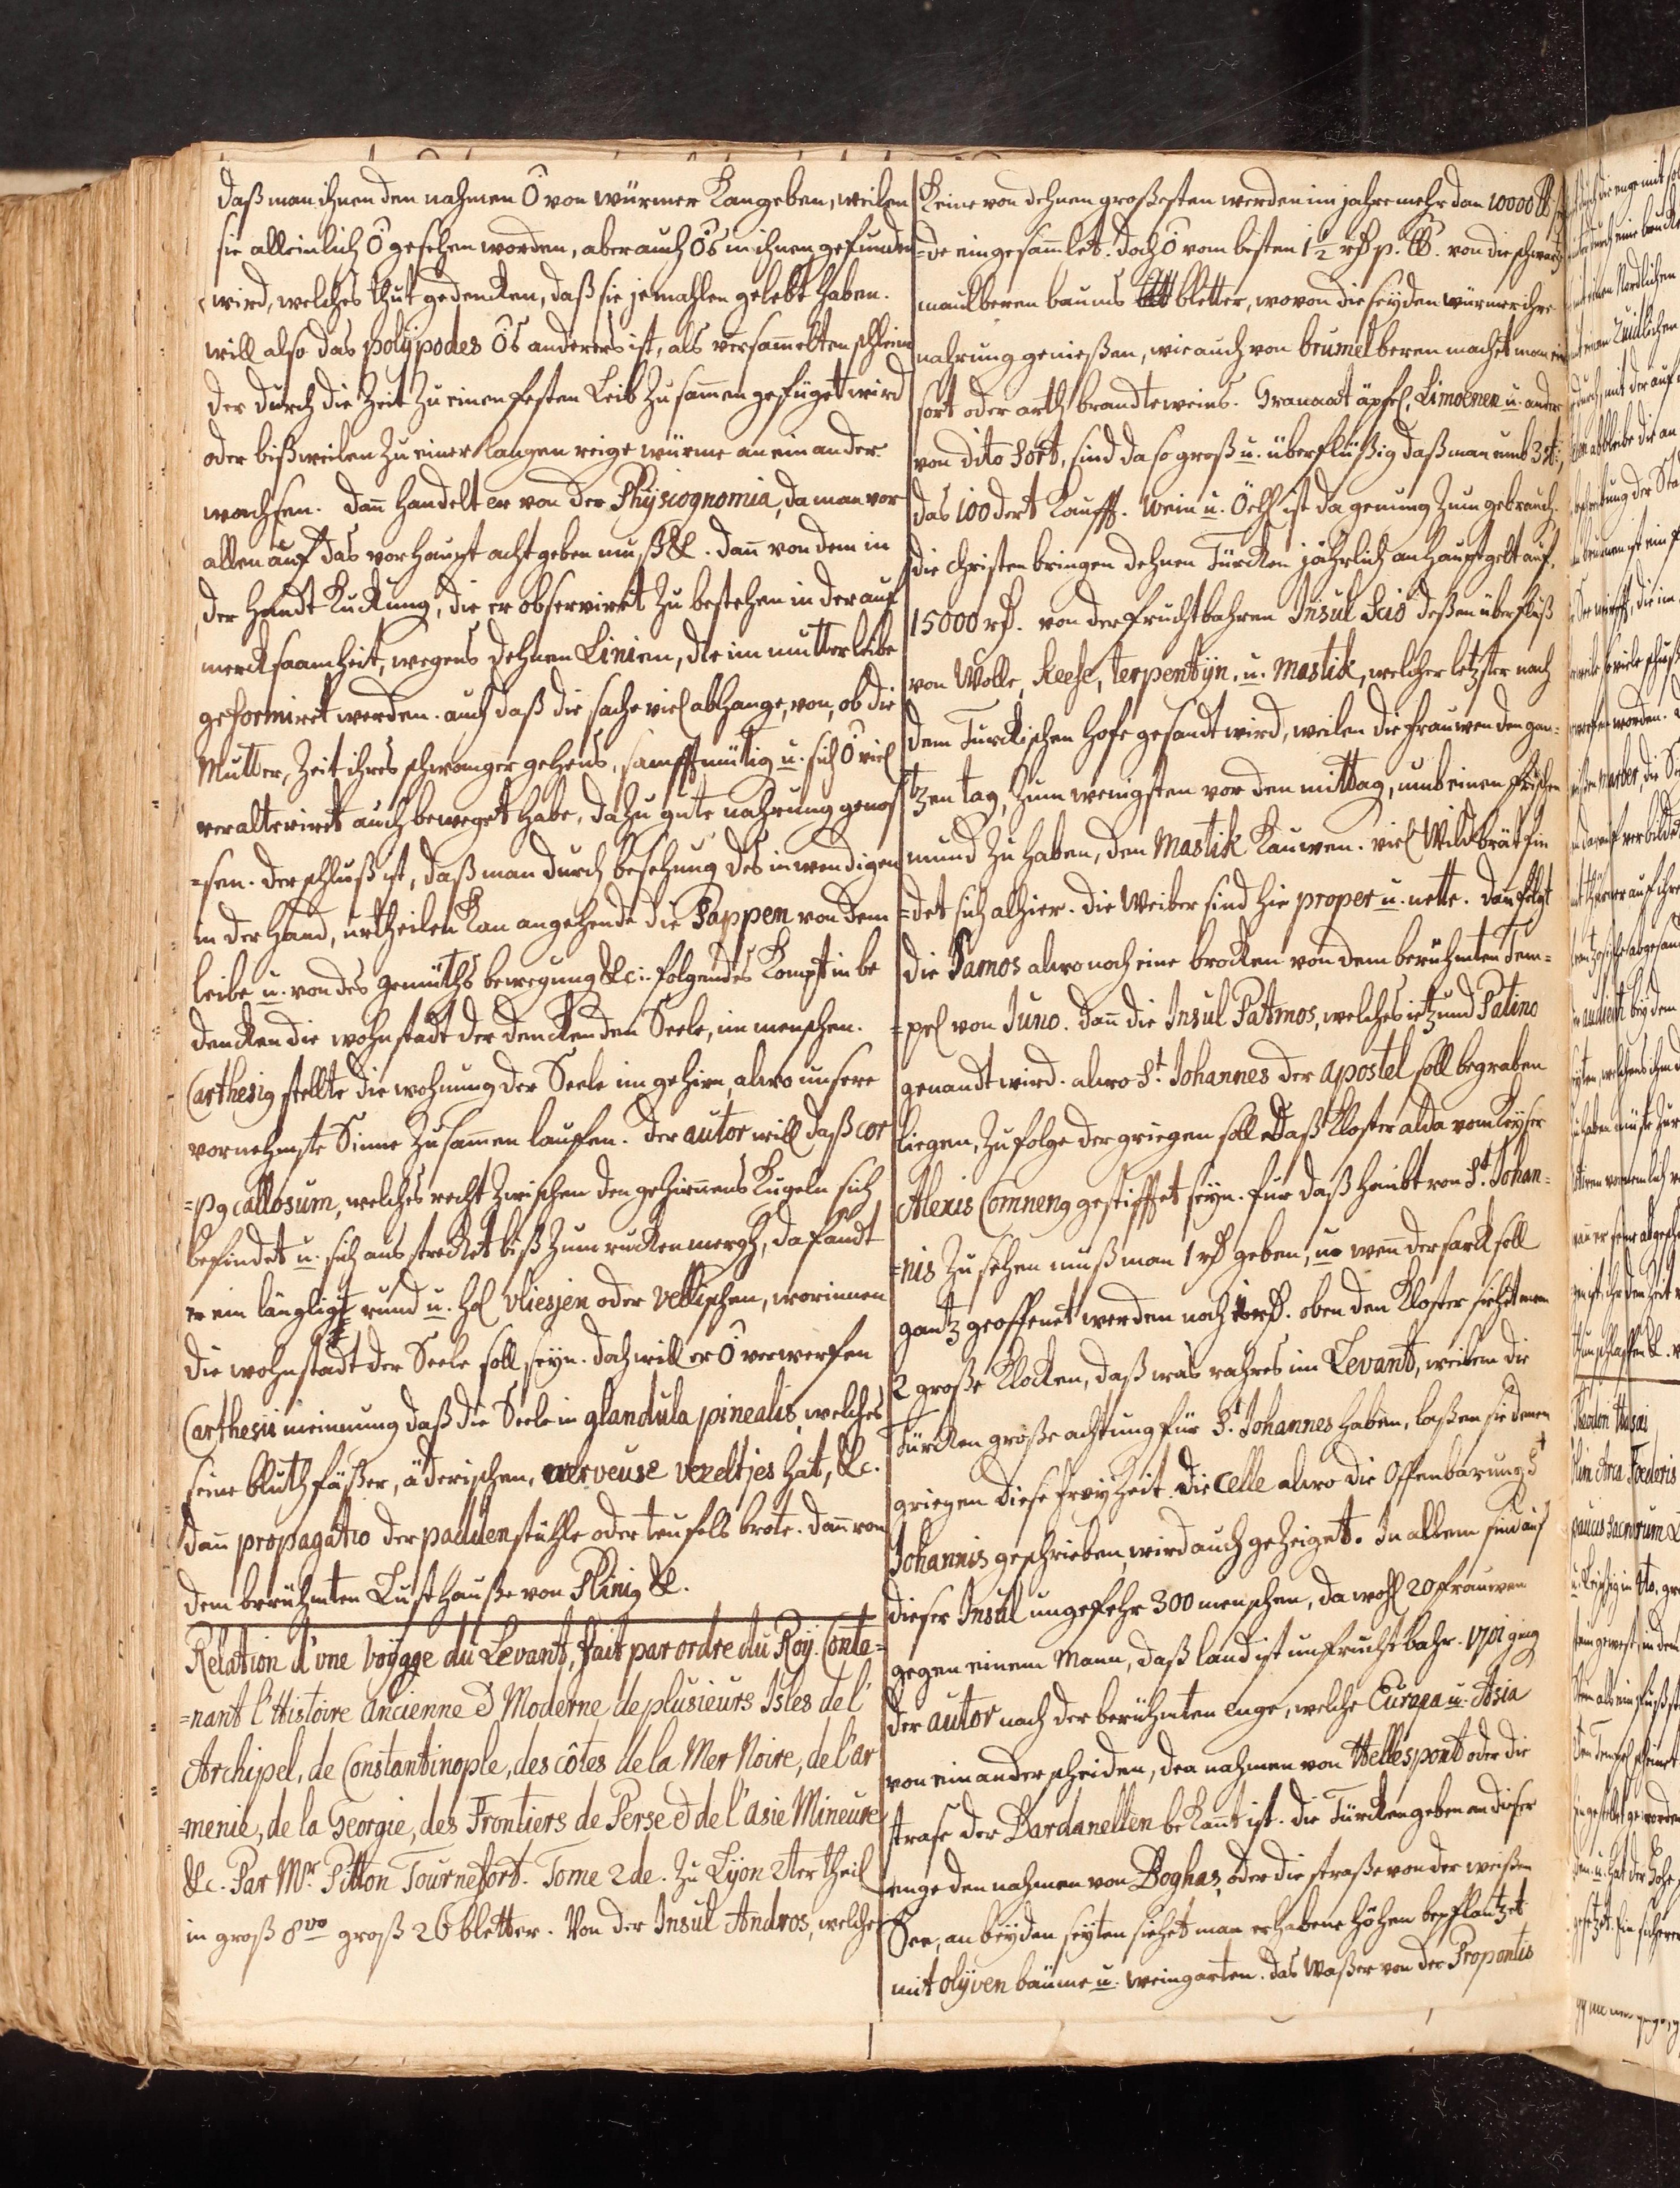 daß man ihnen den nahmen Ô von würmer kan geben, weilen
sie alleinlich Ô gesehen worden, aber auch Ôs in ihnen gefunden
wird, welches thut gedencken, daß sie jemahlen gelebt haben.
will also das polÿpodes Ôs anderers ist, als versamelten schleim
der durch die Zeit zu einen festen Leib zusamen gefüget wird
oder bißweilen zu einer langen reige würme an ein ander
wachsen. dan handelt er von der Physiognomia, da man vor
allen auf das vorhaupt acht geben muß &. dan von dem in
der Handt kuckung, die er observiret zu bestehen in der auf
mercksaamheit, wegens dehnen Linien, die im mutterleibe
geformiret werden. auch daß die sache viel abhange, von, ob die
Mutter, Zeit ihres schwanger gehens, sanfftmütig u. sich Ô viel
veralteriret auch beweget habe, dazu gute nahrung genoß
=sen. der schluß ist, daß man durch besehung des inwendigen
in der Hand, urtheilen kan angehende die Sappen von dem
leibe u. von des gemüths bewegung &c: folgendes kompt in be
dencken die wohnstadt der denckenden Seele, im menschen.
Carthesig stellte die wohnung der Seele im gehirn, alwo unsere
vornehmste Sinne zusamen lauffen. der autor will daß cor
=pg callosum, welches recht zwischen den gehirnens kugeln sich
befindet u. sich aus strecket biß zum ruckenmergh, da fandt
er ein längligt rund u. hol vliesjen oder vellischen, worinnen
die wohnstadt der Seele soll seyn. doch will er Ô verwerfen
Carthesii meinung daß die Seele in glandula pinealis, welches
seine bluthfäßer, äderischen, nerveuse vezeltjes hat, &c.
dan propagatio der paddenstühle oder teufels brote. dan von
dem berühmten Lusthauße von Plinig &.
Relation d'une voÿage du Levant, fait par ordre du Roÿ. Conte=
=nant l'Histoire ancienne & Moderne de plusieurs Isles de l'
Archipel, de Constantinople, des côtes de la Mer Noire, de l'ar
=menie, de la Georgie, des Frontiers de Perse & de l'asie Mineure
&c. Par Mr. Pitton Tournefort. Tome 2de. Zu Lÿon 2ter theil
in groß 8vo groß 26 bletter. Von der Insul Andros, welche
keine von dehnen großesten werden im jahre mehr dan 10000 lb
=de eingesamlet. doch Ô vom besten 1½ rd p. lb. von die schwartz
maulberen baums bletter, wovon die seÿden würmer ihre
nahrung genießen, wie auch von brumelberen machet man ein
sort oder arth brandteweins. Granaat äpfel, Limoenen u. andere
von dito Sort, sind da so groß u. überflüßig daß man umb 3 st:
das 100dert kaufft. Wein u. Öehl ist da genung zum gebrauch.
die Christen bringen dehnen Türcken jährlich an hauptgelt auf,
15000 rd. von der fruchtbahren Insul Scio deßen überfluß
von Wolle, Keese, terpentÿn, u. Mastik, welcher letzter nach
dem Turckischen Hofe gesandt wird, weilen die frauwen den gan=
tzen tag, zum wenigsten vor den mittag, umb einen frischen
mund zu haben, den Mastik kauwen. viel Wildbrät fin
=det sich alhier. die Weiber sind hie proper u. nette. dan folgt
die Samos alwo noch eine brocken von dem berühmten Tem=
=pel von Juno. dan die Insul Patmos, welches ietzund Patino
genandt wird. alwo St. Johannes der apostel soll begraben
liegen, zu folge der griegen soll daß Kloster alda vom Keÿser
Alexis Comneng gestifftet seyn. für daß haubt von St. Johan=
=nis zu sehen muß man 1 rd geben, u. wen der sarck soll
gantz geoffenet werden noch 1 rd. oben den Kloster siehet man
2 große klocken, daß was rahres im Levant, weilen die
Türcken große achtung für St. Johannes haben, laßen sie denen
griegen diese freÿheit. die Celle alwo die Offenbarung St
Johannis geschrieben, wird auch gezeiget. In allem sind auf
dieser Insul ungefehr 300 menschen, da wohl 20 frauwen
gegen einem Mann, daß land ist unfruchtbahr. 1701 ging
der autor nach der berühmten enge, welche Europa u. Asia
von einander scheiden, den nahmen von Hellespont oder die
strase der Dardanellen bekannt ist. die Türcken geben an dieser
enge den nahmen von Boghas, oder die straße von der weißen
See, an beÿden seÿten siehet man erhabene höhen bepflantzet
mit olÿven bäume u. weingarten. das waßer von der Propontis